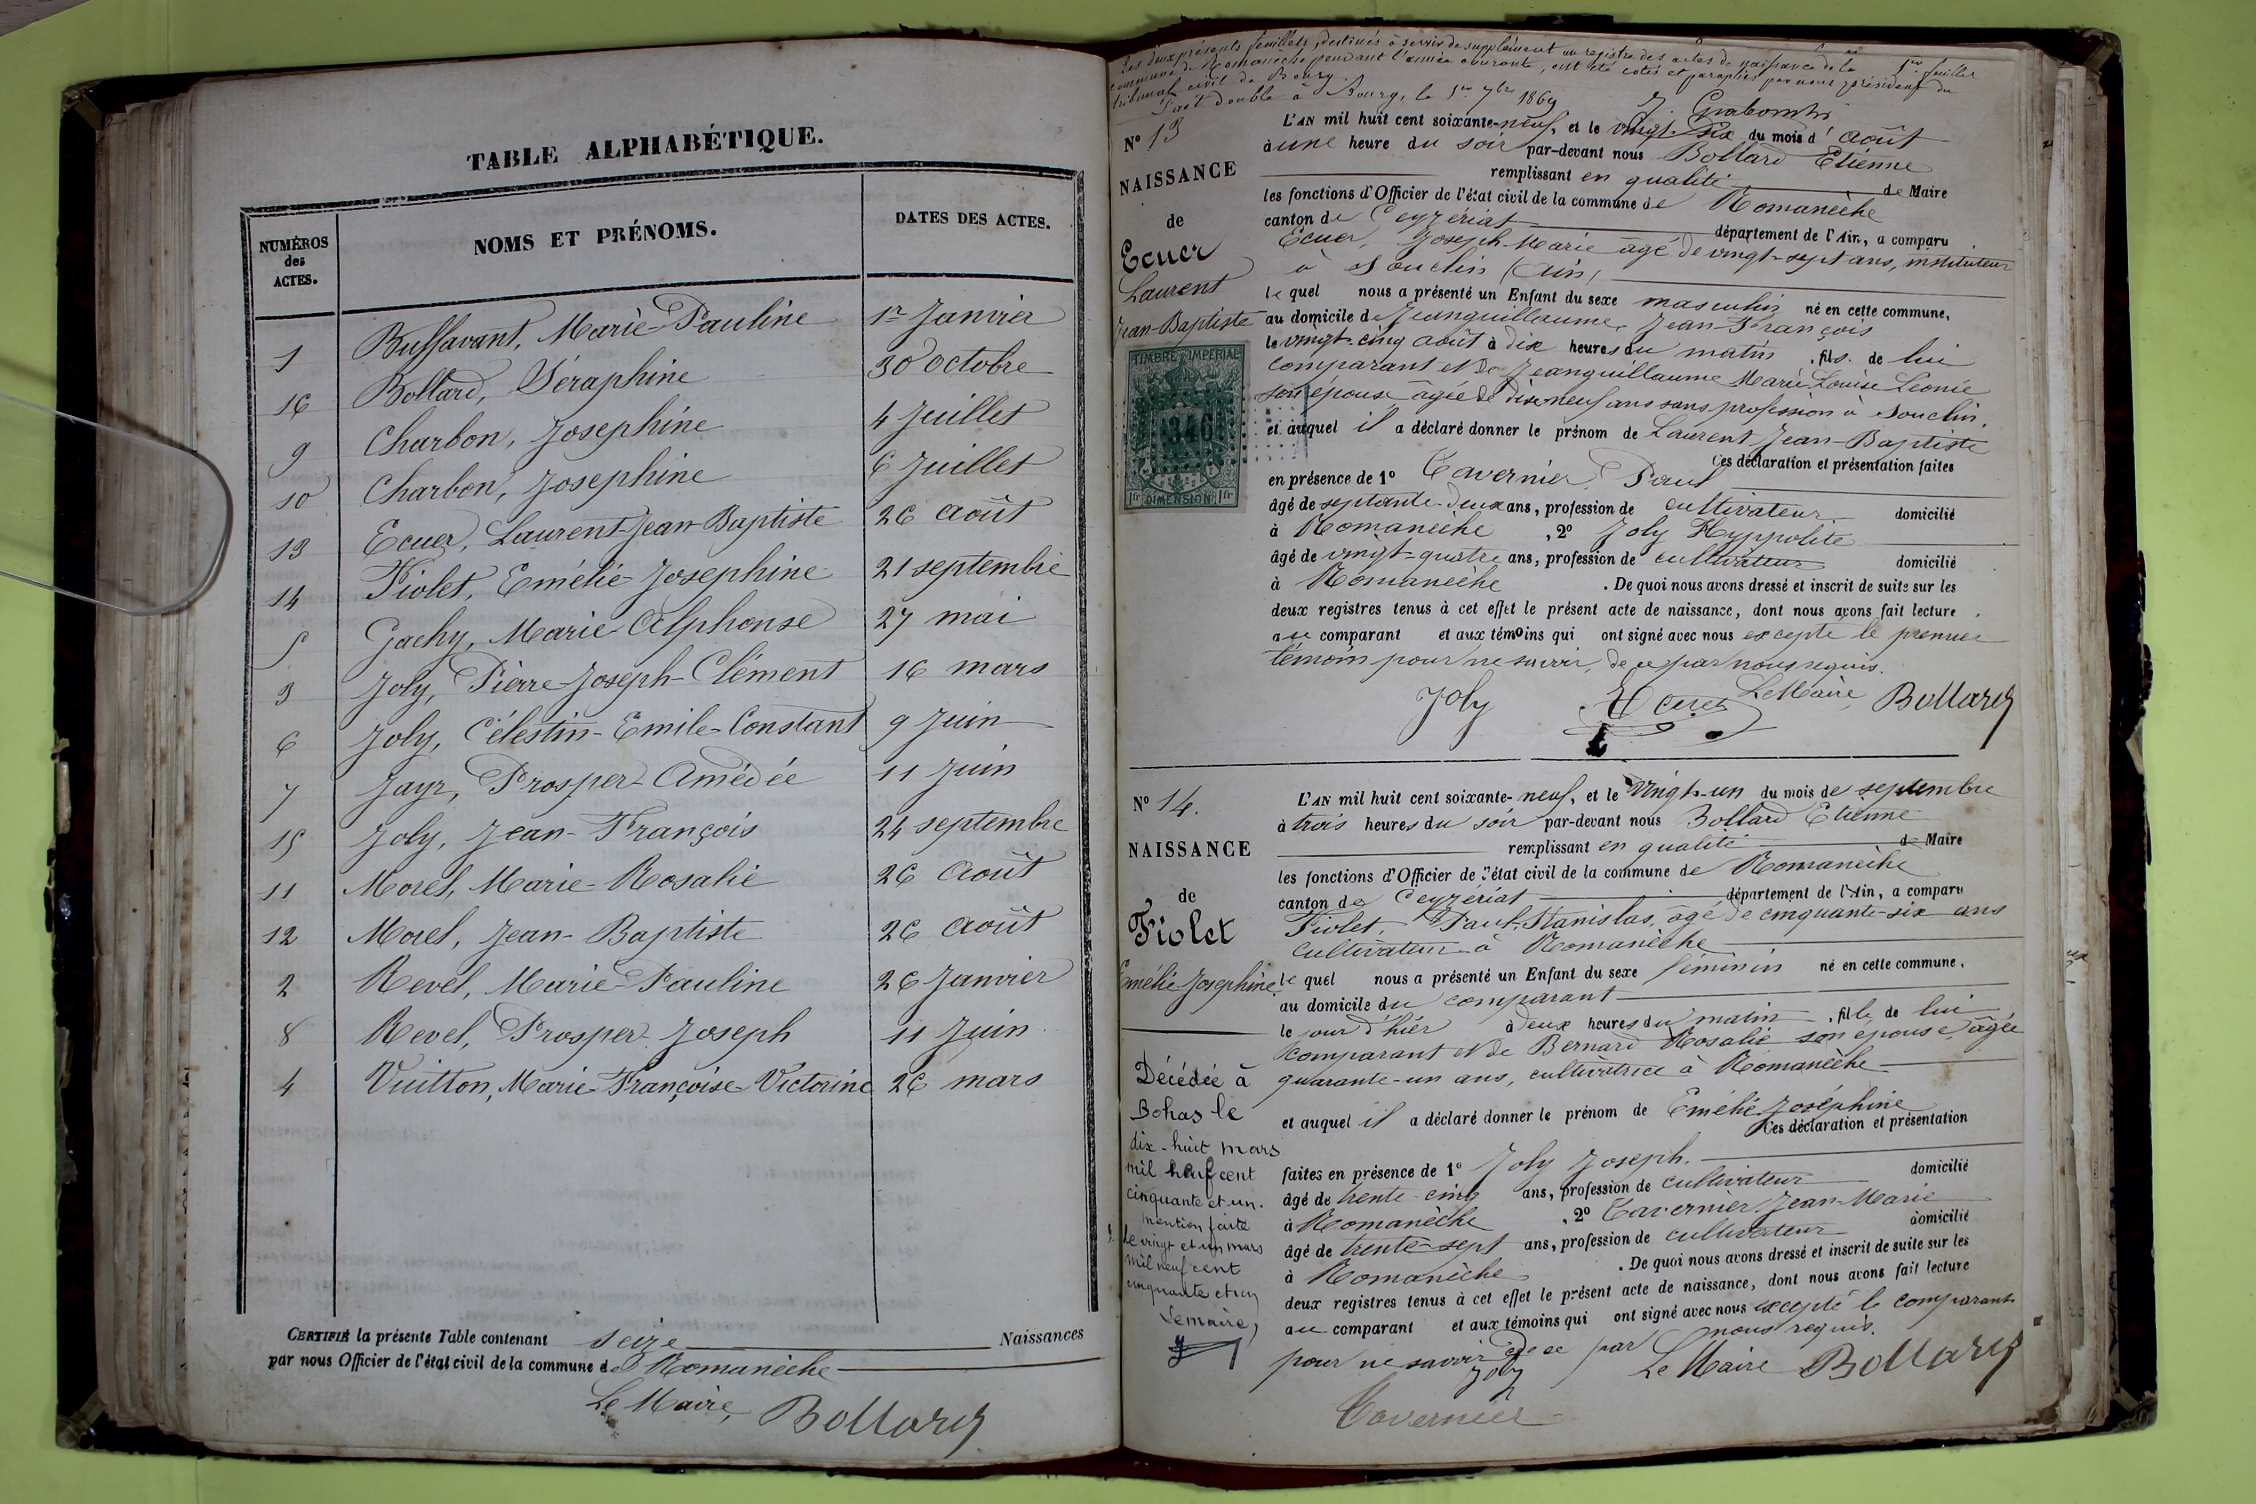 TABLE ALPHABÉTIQUE.
NUMÉROS des ACTES. NOMS ET PRÉNOMS. DATES DES ACTES.
1 Buffavant, Marie-Pauline 1er Janvier
16 Bollard, Séraphine 30 octobre
9 Charbon, Josephine 4 Juillet
10 Charbon, Josephine 6 Juillet
13 Ecuer, Laurent-Jean-Baptiste 26 août
14 Fiolet, Emélie Josephine 21 septembre
5 Gachy, Marie-Alphonse 27 mai
3 Joly, Pierre-Joseph-Clément 16 mars
6 Joly, Célestin-Emile-Constant 9 Juin
7 Jayr, Prosper-Amédée 11 Juin
15 Joly, Jean-François 24 septembre
11 Morel, Marie-Rosalie 26 août
12 Morel, Jean-Baptiste 26 août
2 Revel, Marie-Pauline 26 Janvier
8 Revel, Prosper-Joseph 11 Juin
4 Vuitton, Marie-Françoise-Victorine 26 mars
CERTIFIÉ la présente Table contenant seize Naissances
par nous Officier de l'état civil de la commune de Romanèche
Le Maire, Bollard
Les deux présents feuillets, destinés à servir de supplément au registre des actes de naissance de la 1er feuillet
commune de Romanèche pendant l'année courante, ont été cotés et paraphés par nous président du
tribunal civil de Bourg.
Fait double à Bourg, le 1er 7bre 1869
No 13
NAISSANCE
de
Ecuer
Laurent
Jean-Baptiste
TIMBRE IMPÉRIAL
346
1 fr DIMENSION 1 fr
L'AN mil huit cent soixante-neuf, et le vingt-six du mois d'août
à une heure du soir par-devant nous Bollard Etienne
remplissant en qualité de Maire
les fonctions d'Officier de l'état civil de la commune de Romanèche
canton de Ceyzériat département de l'Ain, a comparu
Ecuer, Joseph-Marie âgé de vingt-sept ans, instituteur
à Souclin (Ain)
lequel nous a présenté un Enfant du sexe masculin né en cette commune,
au domicile de Jeanguillaume, Jean-François
le vingt-cinq août à dix heures du matin, fils de lui
comparant et de Jeanguillaume Marie-Louise Léonie
son épouse âgée de dix-neuf ans sans profession à Souclin,
et auquel il a déclaré donner le prénom de Laurent Jean-Baptiste
Ces déclaration et présentation faites
en présence de 1o Tavernier Paul
âgé de septante-deux ans, profession de cultivateur domicilié
à Romanèche, 2o Joly Hyppolite
âgé de vingt-quatre ans, profession de cultivateur domicilié
à Romanèche. De quoi nous avons dressé et inscrit de suite sur les
deux registres tenus à cet effet le présent acte de naissance, dont nous avons fait lecture
au comparant et aux témoins qui ont signé avec nous excepté le premier
témoin pour ne savoir, de ce par nous requis.
Joly Ecuer Le Maire, Bollard
No 14.
NAISSANCE
de
Fiolet
Emélie-Josephine
Décédée à
Bohas le
dix-huit mars
mil neuf cent
cinquante et un.
mention faite
Le vingt et un mars
mil neuf cent
cinquante et un
Le maire,
L'AN mil huit cent soixante-neuf, et le vingt-un du mois de septembre
à trois heures du soir par-devant nous Bollard Etienne
remplissant en qualité de Maire
les fonctions d'Officier de l'état civil de la commune de Romanèche
canton de Ceyzériat département de l'Ain, a comparu
Fiolet, Paul-Stanislas, âgé de cinquante-six ans
cultivateur à Romanèche
lequel nous a présenté un Enfant du sexe féminin né en cette commune,
au domicile du comparant
le jour d'hier à deux heures du matin, fille de lui
comparant et de Bernard Rosalie son épouse, âgée
quarante-un ans, cultivatrice à Romanèche
et auquel il a déclaré donner le prénom de Emélie Joséphine
Ces déclaration et présentation
faites en présence de 1o Joly Joseph.
âgé de trente-cinq ans, profession de cultivateur domicilié
à Romanèche, 2o Tavernier Jean-Marie
âgé de trente-sept ans, profession de cultivateur domicilié
à Romanèche. De quoi nous avons dressé et inscrit de suite sur les
deux registres tenus à cet effet le présent acte de naissance, dont nous avons fait lecture
au comparant et aux témoins qui ont signé avec nous excepté le comparant
pour ne savoir de ce par nous requis.
Joly Le Maire Bollard
Tavernier